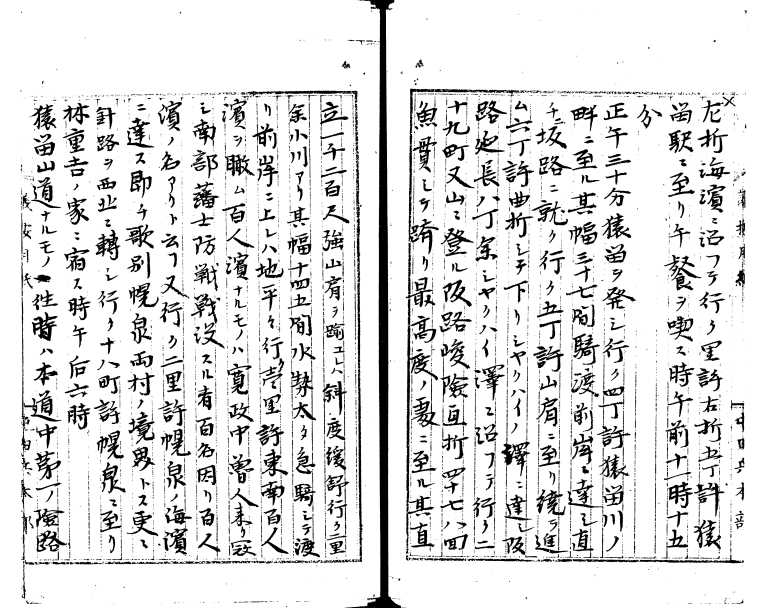 左折海濱ニ沿フテ行ク里許右折五丁許猿
留駅ニ至リ午餐ヲ喫ス時午前十一時十五
分
正午三十分猿留ヲ発シ行ク四丁許猿留川ノ
畔ニ至ル其幅三十七間騎渡前岸ニ達シ直
チニ坂路ニ就ク行ク五丁許山肩ニ至リ繞テ進
ム六丁許曲折シテ下リシヤクハイノ澤ニ達シ阪
路延長八丁余シヤクハイ澤ニ沿フテ行ク二
十九町又山ニ登ル阪路峻険直折四十七八回
魚貫シテ躋リ最高度ノ處ニ至ル其直
立一千二百尺強山肩ヲ踰ユレハ斜度緩舒行ク二里
余小川アリ其幅十四五間水勢太タ急騎シテ渡
リ前岸ニ上レハ地平々行ク壱里許東南百人
濱ヲ瞰ム百人濱ナルモノハ寛政中魯人来リ冦
シ南部藩士防戦戦没スル者百名因リ百人
濱ノ名アリト云フ又行ク二里許幌泉ノ海濱
ニ達ス即チ歌別幌泉両村ノ境界トス更ニ
針路ヲ西北ニ轉シ行ク十八町許幌泉ニ至リ
林重吉ノ家ニ宿ス時午后六時
猿留山道ナルモノ一往時ハ本道中第一ノ險路